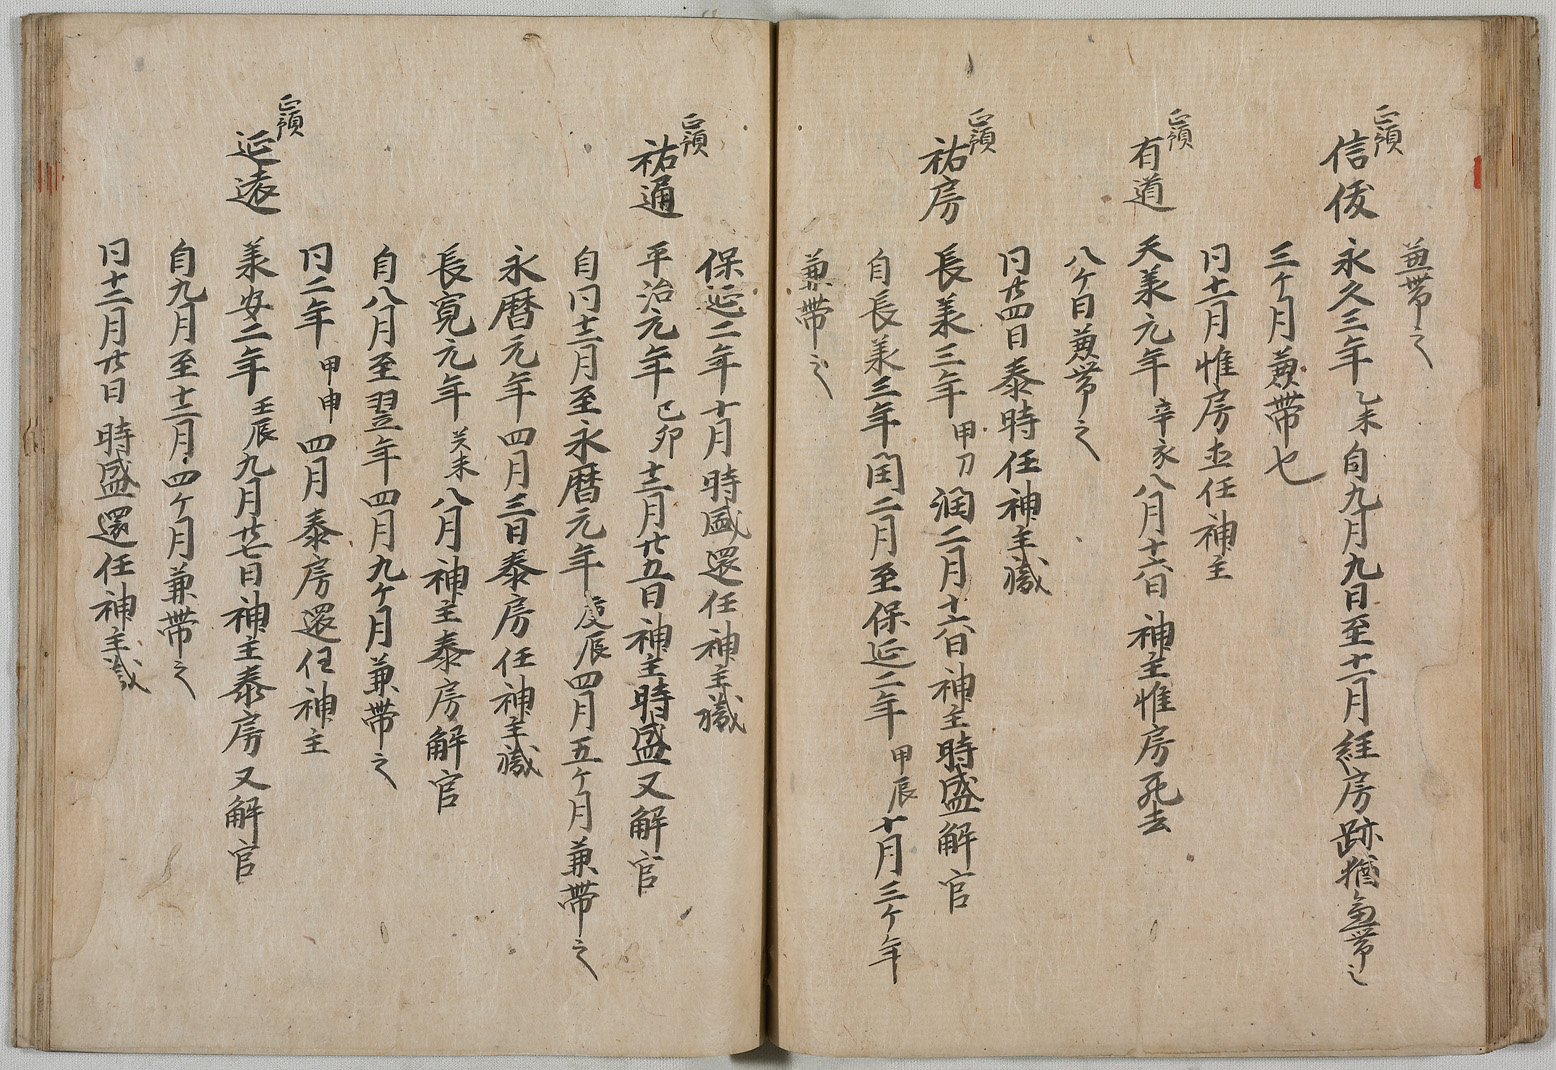 兼帯之
正預
信俊 永久三年乙未自九月九日至十一月経房跡猶兼帯之
三ケ月兼帯也
同十一月惟房並任神主
正預
有道 天羕元年辛亥八月十六日神主惟房死去
八ケ日兼帯之
同廿四日泰時任神主職
正預
祐房 長羕三年甲刀潤二月十六日神主時盛解官
自長羕三年閏二月至保延二年甲辰十月三ケ年
兼帯之
保延二年十月時盛還任神主職
正預
祐通 平治元年己卯十二月廿五日神主時盛又解官
自同十二月至永暦元年庚辰四月五ケ月兼帯之
永暦元年四月三日泰房任神主職
長寛元年癸未八月神主泰房解官
自八月至翌年四月九ケ月兼帯之
同二年甲申四月泰房還任神主
正預
延遠 羕安二年壬辰九月廿七日神主泰房又解官
自九月至十二月四ケ月兼帯之
同十二月廿日時盛還任神主職